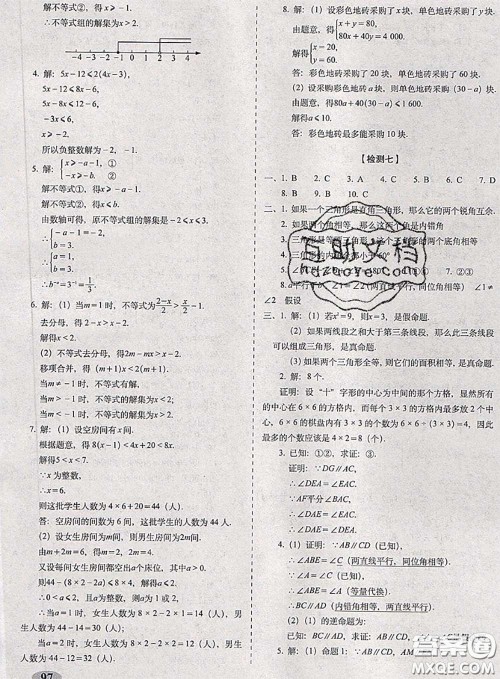 解不等式②得x≤-1.
∴不等式组的解集为x>2.
-4 -3 -2 -1 0 1 2 3 4
4. 解:5x-12≤2(4x-3),
5x-12≤8x-6,
5x-8x≤12-6,
-3x≤6,
x≥-2.
所以负整数解为-2, -1.
5. 解:{x≥-a-1, ①
-x≥-b. ②
解不等式①,得x≥-a-1.
解不等式②,得x≤b.
由数轴可得,原不等式组的解集是-2≤x≤3,
∴{-a-1=-2,
b=3.
∴{a=1,
b=3.
6. 解:(1)当m=1时,不等式为(2-x)/2>x/2-1.
去分母,得2-x>x-2.
解得x<2.
(2)不等式去分母,得2m-mx>x-2.
移项合并,得(m+1)x<2(m+1).
当m≠-1时,不等式有解.
当m>-1时,不等式解集为x<2.
当m<-1时,不等式解集为x>2.
7. 解:(1)设空房间有x间.
根据题意,得8(x-1)<4x+20<8x.
解得5<x<7.
∵x为整数,
∴x=6.
则这批学生人数为4×6+20=44(人).
答:空房间的间数为6间,这批学生人数为44人.
(2)设女生房间为m间,男生房间为n间.
由m+2m=6,得m=2.
又设每间女生房间都空出a个床位,其中a>0,
则44-(8-2-a)×2≤8×4.
解得a≤2.
∴0<a≤2,
∵a为整数,∴a=1或a=2.
∴当a=1时,女生人数为8×2-2×1=14(人),男
生人数为44-14=30(人);
当a=2时,女生人数为8×2-2×2=12(人),男生
人数为44-12=32(人).
97
8. 解:(1)设彩色地砖采购了x块,单色地砖采购了y块.
由题意,得{x+y=80,
80x+40y=4 000.
解得{x=20,
y=60.
答:彩色地砖采购了20块,单色地砖采购了60块.
(2)设彩色地砖a块,则单色地砖采购(30-a)块.
由题意,得80a+40(30-a)≤1 600.
解得a≤10.
答:彩色地砖最多能采购10块.
【检测七】
一、1. B 2. B 3. B 4. C 5. B 6. C 7. D
8. B 9. B 10. C
二、1. 如果一个三角形是直角三角形,那么它的两个锐角互余.
三、1. 解:(1)若x²=9,则x=3,是假命题.
(2)如果两线段之和大于第三条线段,那么这三条线段可
以组成三角形,是真命题.
(3)如果两个三角形全等,则它们的面积相等,是真命题.
2. 解:8
证明:设“十”字形的中心为中间的那个方格,显然中心
在6×6的方格内,而每个3×3的方格有4个方格,在
6×6的棋盘内有3×3的个数为6×6÷(3×3)=4,因此
最多的个数应该是4×2=8(个).
3. 已知:①②,求证:③.
证明:∵DG∥AC,
∴∠DEA=∠EAC.
∵AF平分∠BAC,
∴∠DAE=∠EAC.
∴∠DAE=∠DEA.
4. (1)证明:∵AB∥CD(已知),
∴∠ABE=∠C(两直线平行,同位角相等).
∵∠A=∠C(已知),
∴∠ABE=∠A(等量代换).
∴BC∥AD(内错角相等,两直线平行).
(2)(1)的逆命题为:
已知:BC∥AD,求证:AB∥CD
5. 解:(1)命题1:∵AB∥CD(已知),
答案圈
MXQE.COM